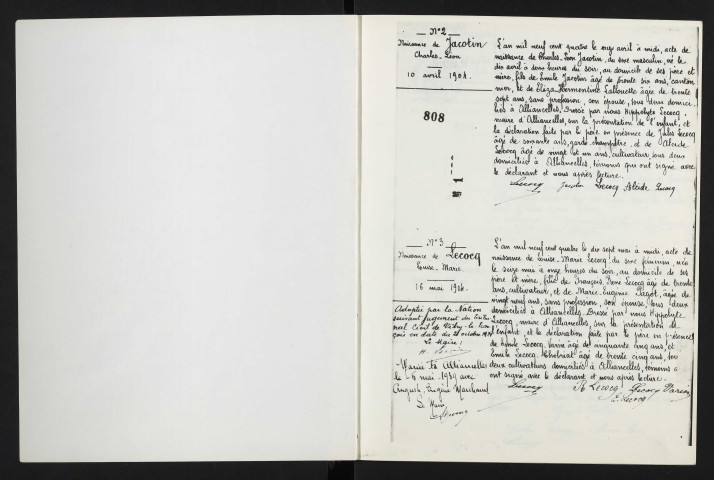 N° 2
Naissance de Jacotin
Charles, Léon
10 avril 1904.
808
L'an mil neuf cent quatre le onze avril à midi, acte de
naissance de Charles, Léon Jacotin, du sexe masculin, né le
dix avril à deux heures du soir, au domicile de ses père et
mère, fils de Emile Jacotin âgé de trente six ans, cantonnier
et de Eliza Hermentine Lallouette âgée de trente
sept ans, sans profession, son épouse, tous deux domici-
liés à Alliancelles. Dressé par nous Hippolyte Lecocq,
maire d'Alliancelles, sur la présentation de l'enfant, et
la déclaration faite par le père en présence de Jules Lecocq
âgé de soixante ans, garde-champêtre, et de Alcide
Lecocq âgé de vingt et un ans, cultivateur, tous deux
domiciliés à Alliancelles, témoins qui ont signé avec
le déclarant et nous après lecture.
Lecocq Jacotin Lecocq Alcide Lecocq
N° 3
Naissance de Lecocq
Louise-Marie
16 mai 1904.
Adoptée par la Nation
suivant jugement du tribu-
nal Civil de Vitry-le-Fran-
çois en date du octobre
Le Maire :
Mariée à Alliancelles
le 6 mai 1929 avec
Auguste Eugène Marchand
Le Maire
L'an mil neuf cent quatre le dix sept mai à midi, acte de
naissance de Louise-Marie Lecocq, du sexe féminin, née
le seize mai à onze heures du soir, au domicile de ses
père et mère, fille de François, René Lecocq âgé de trente
ans, cultivateur, et de Marie-Eugénie Pagot, âgée de
vingt neuf ans, sans profession, son épouse, tous deux
domiciliés à Alliancelles. Dressé par nous Hippolyte
Lecocq, maire d'Alliancelles, sur la présentation de
l'enfant, et la déclaration faite par le père en présence
de Emile Lecocq Varin âgé de cinquante cinq ans, et
Emile Lecocq âgé de trente cinq ans, tous
deux cultivateurs domiciliés à Alliancelles, témoins qui
ont signé avec le déclarant et nous après lecture.
Lecocq R Lecocq Lecocq Varin
E. Lecocq